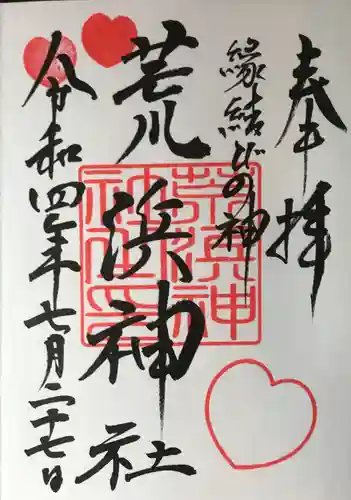 奉拝
縁結びの神
荒川浜神社
令和四年七月二十七日